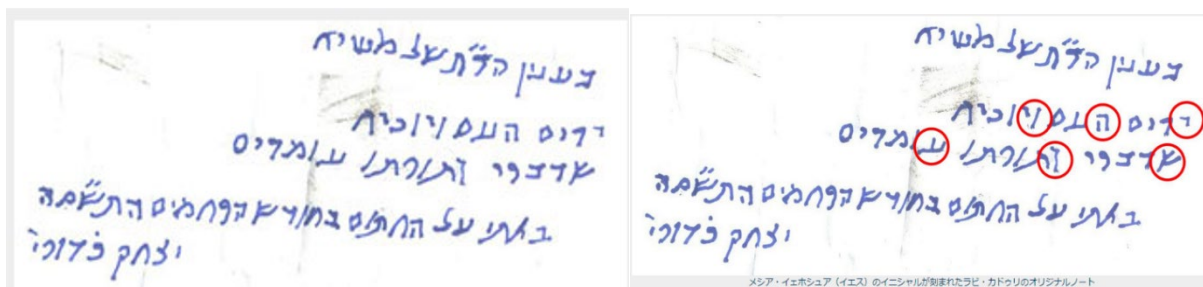 בענין הר״ת של משיח
ירים העם ויוכיח
שדברו ותורתו עומדים
באתי על החתום בחודש הרחמים התשס״ה
יצחק כדורי
בענין הר״ת של משיח
ירים העם ויוכיח
שדברו ותורתו עומדים
באתי על החתום בחודש הרחמים התשס״ה
יצחק כדורי
メシア・イェホシュア（イエス）のイニシャルが刻まれたラビ・カドゥリのオリジナルノート